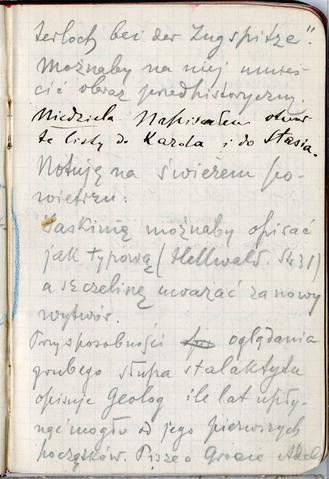 terloch bei der Zugspitze".
Możnaby na niej umieś-
cić obraz przedhistoryczny
Niedziela Napisałem otwar-
te listy do Karola i do Stasia.
Notuję na świeżem po-
wietrzu:
Jaskinię możnaby opisać
jak typową (Hellwald. Str 31)
a szczelinę uważać za nowy
wytwór.
Przy sposobności oglądania
grubego słupa stalaktytu
opisuje Geolog ile lat upły-
nąć mogło od jego pierwszych
początków. Pisze o Grocie